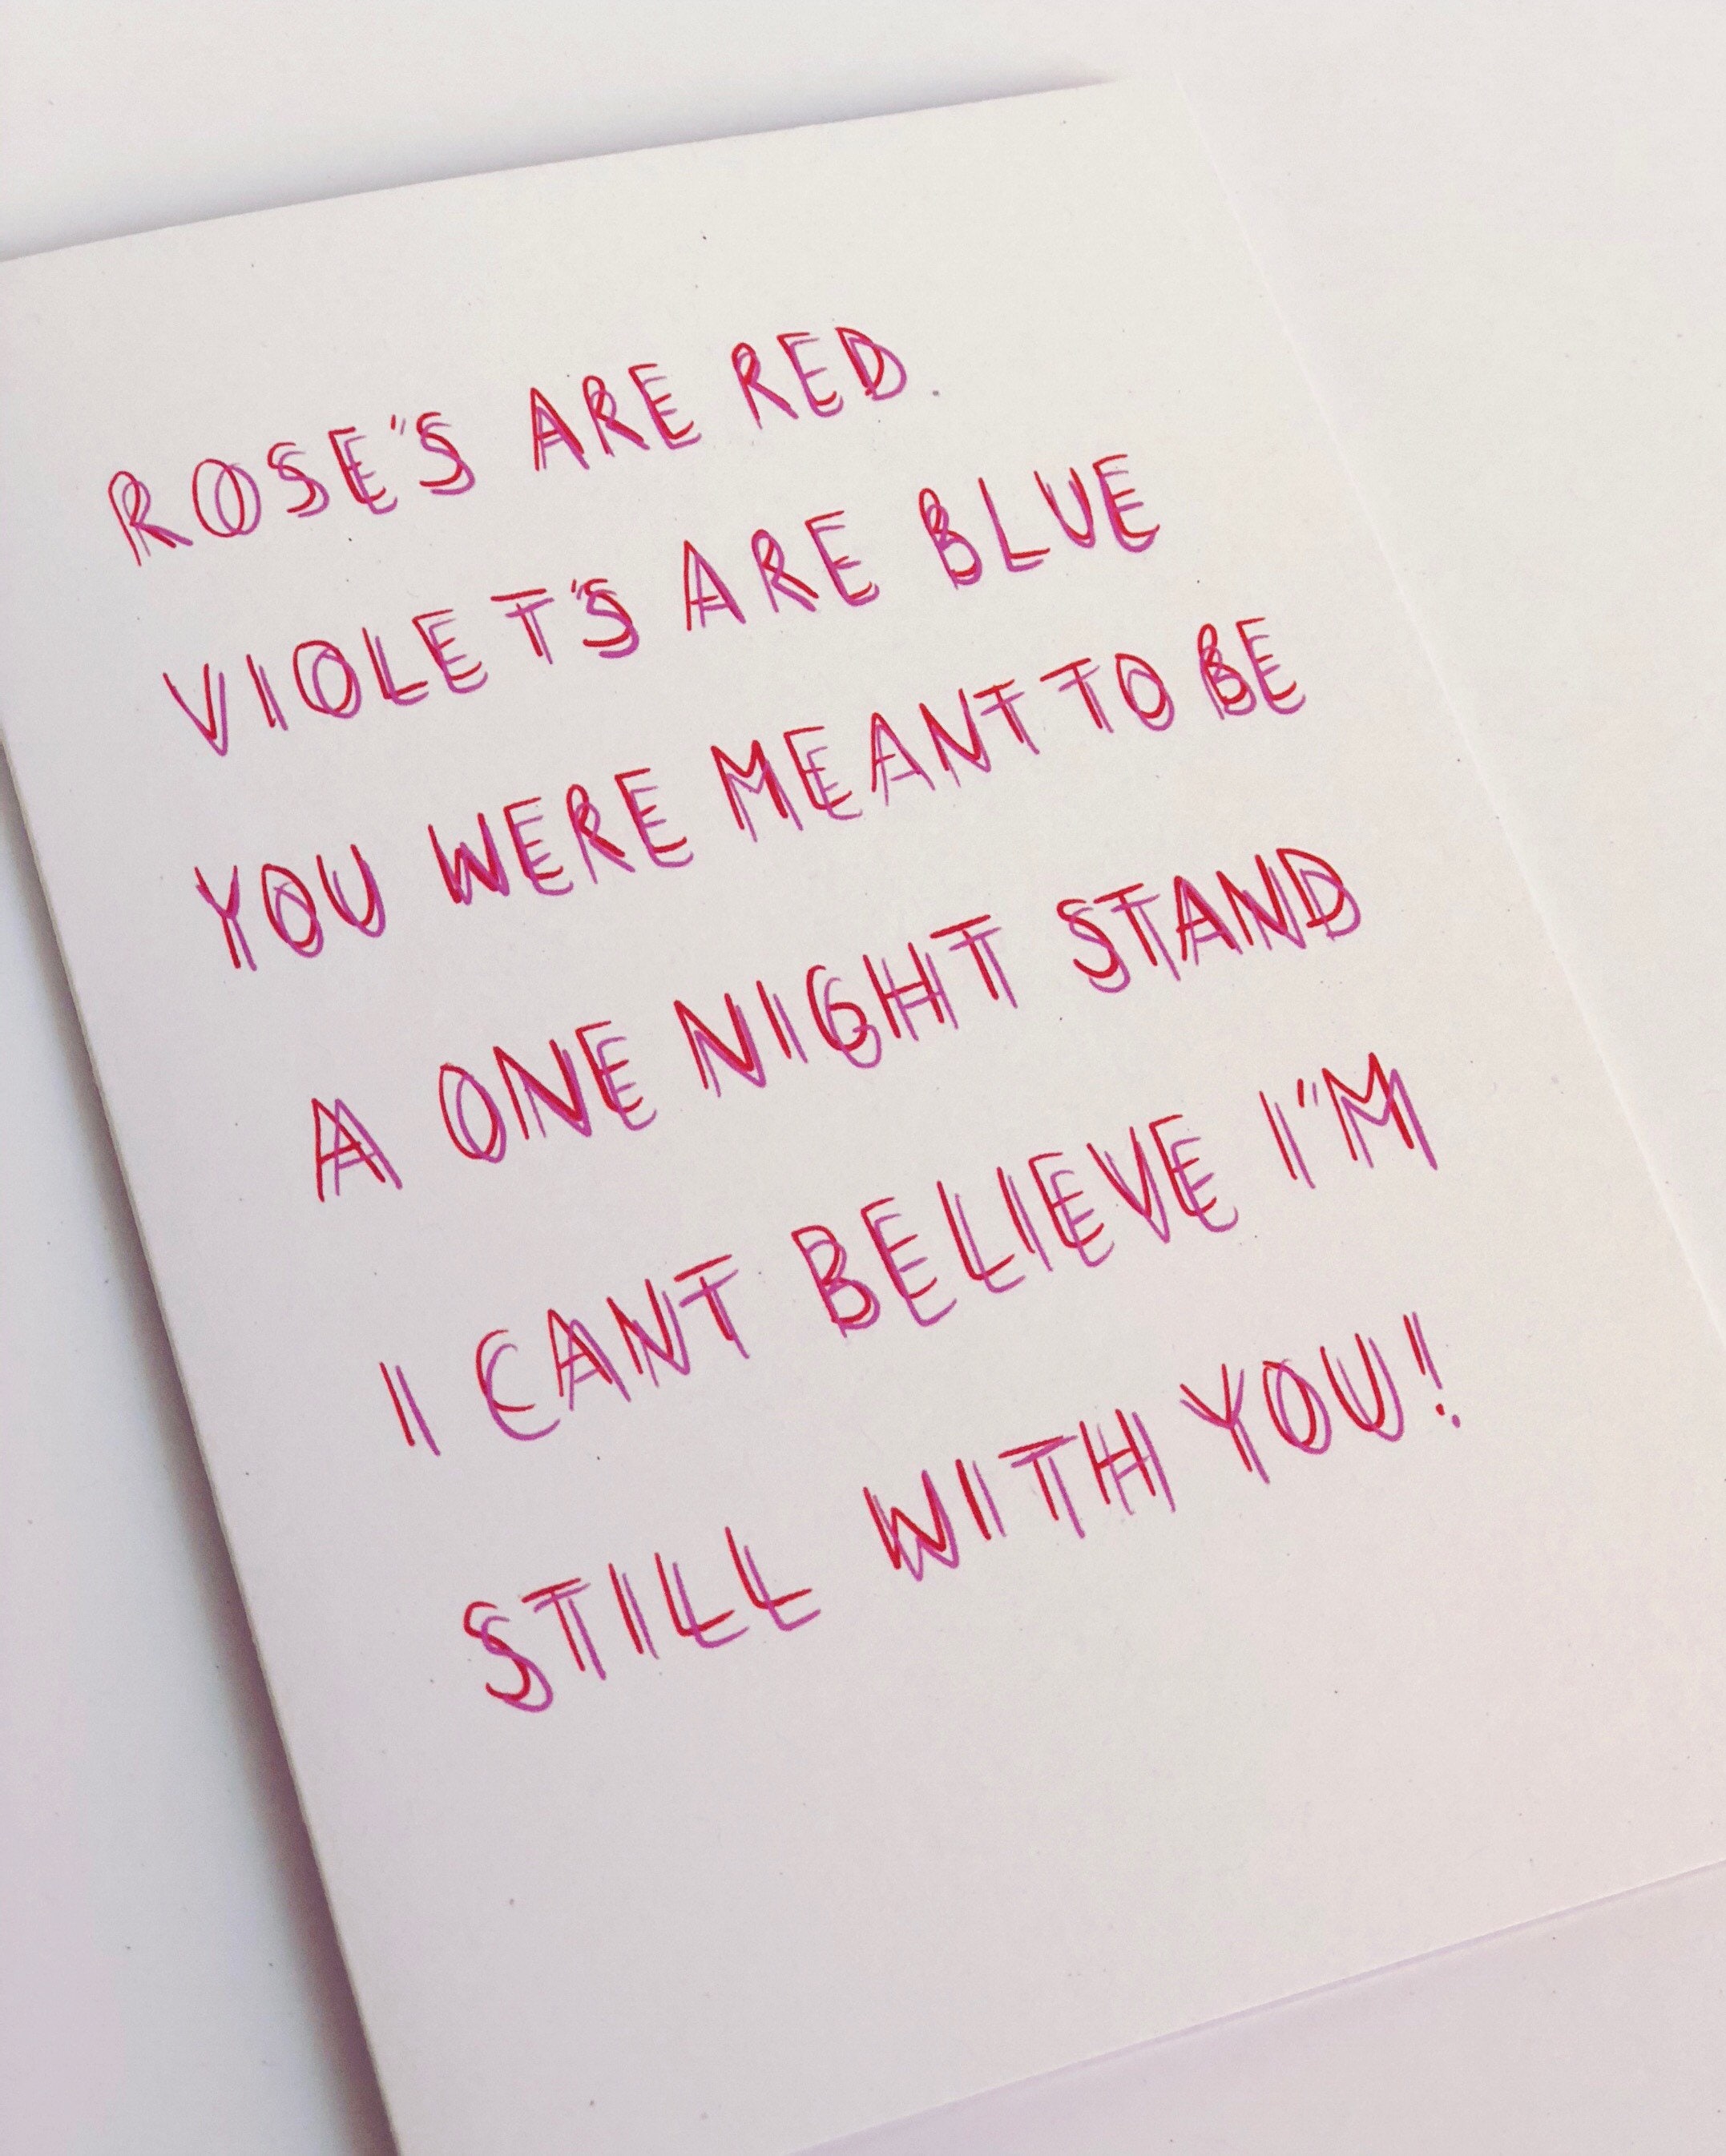 ROSE'S ARE RED.
VIOLET'S ARE BLUE
YOU WERE MEANT TO BE
A ONE NIGHT STAND
I CANT BELIEVE I'M
STILL WITH YOU!